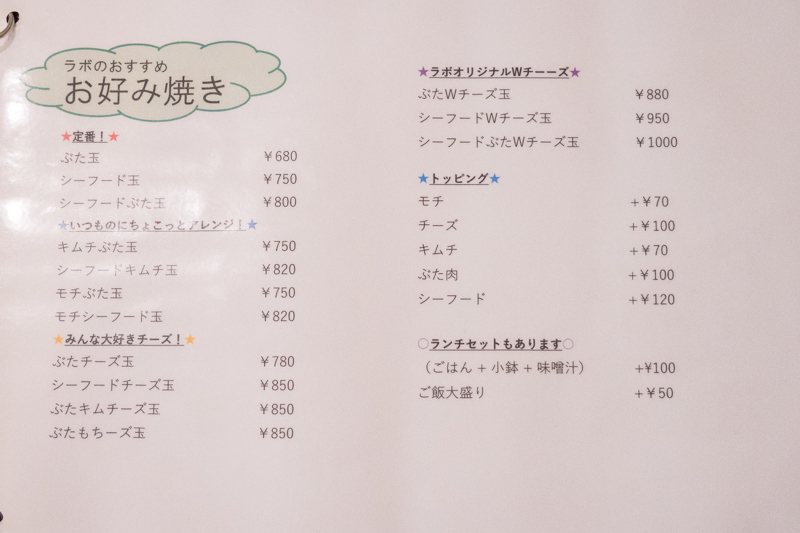 ラボのおすすめ
お好み焼き
★定番！★
ぶた玉 ￥680
シーフード玉 ￥750
シーフードぶた玉 ￥800
★いつものにちょこっとアレンジ！★
キムチぶた玉 ￥750
シーフードキムチ玉 ￥820
モチぶた玉 ￥750
モチシーフード玉 ￥820
★みんな大好きチーズ！★
ぶたチーズ玉 ￥780
シーフードチーズ玉 ￥850
ぶたキムチーズ玉 ￥850
ぶたもちーズ玉 ￥850
★ラボオリジナルWチーーズ★
ぶたWチーズ玉 ￥880
シーフードWチーズ玉 ￥950
シーフードぶたWチーズ玉 ￥1000
★トッピング★
モチ +￥70
チーズ +￥100
キムチ +￥70
ぶた肉 +￥100
シーフード +￥120
○ランチセットもあります○
（ごはん + 小鉢 + 味噌汁） +¥100
ご飯大盛り +￥50